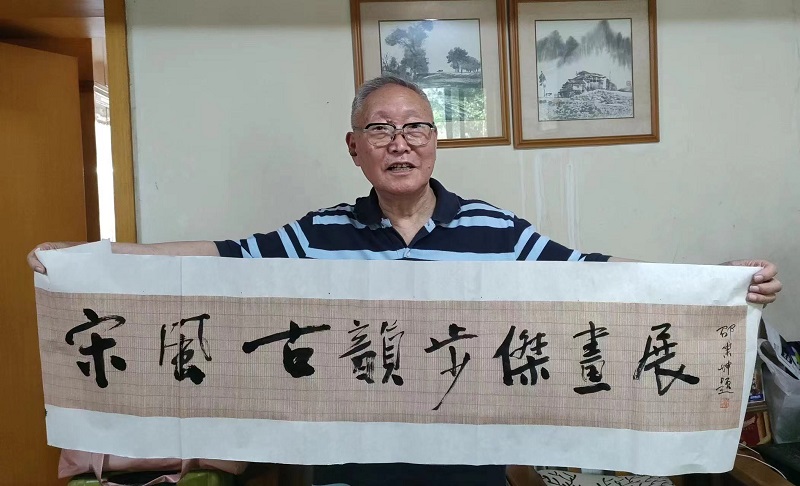 宋風古韻步傑畫展
邵題